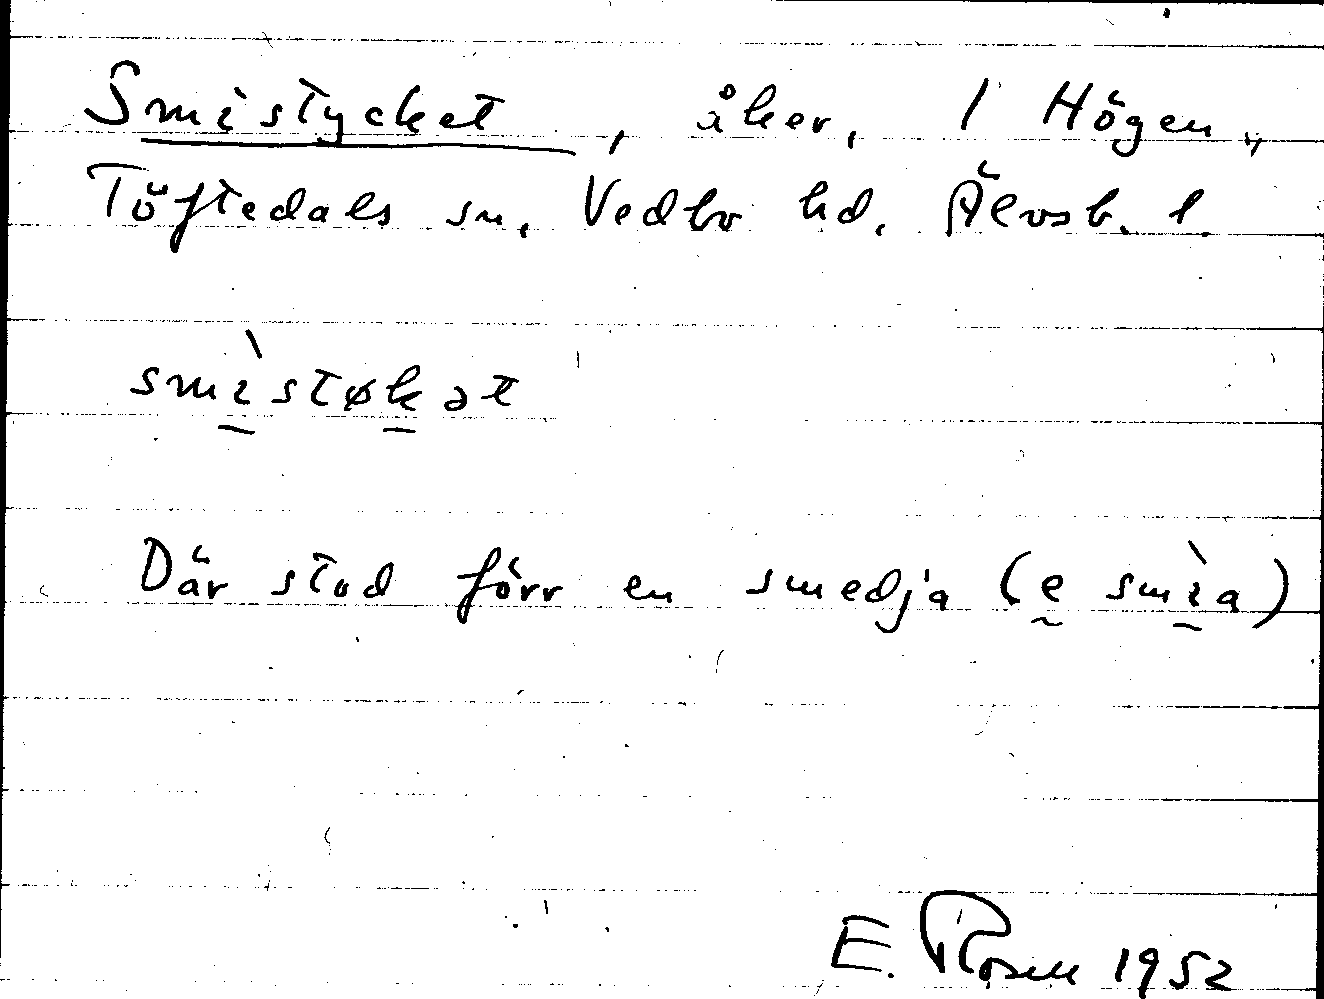 Smistycket, åker, 1 Högen,
Töftedals sn, Vedbo hd, Älvsb. l.
smìstøkət
Där stod förr en smedja (e smìa)
E. Rosell 1952